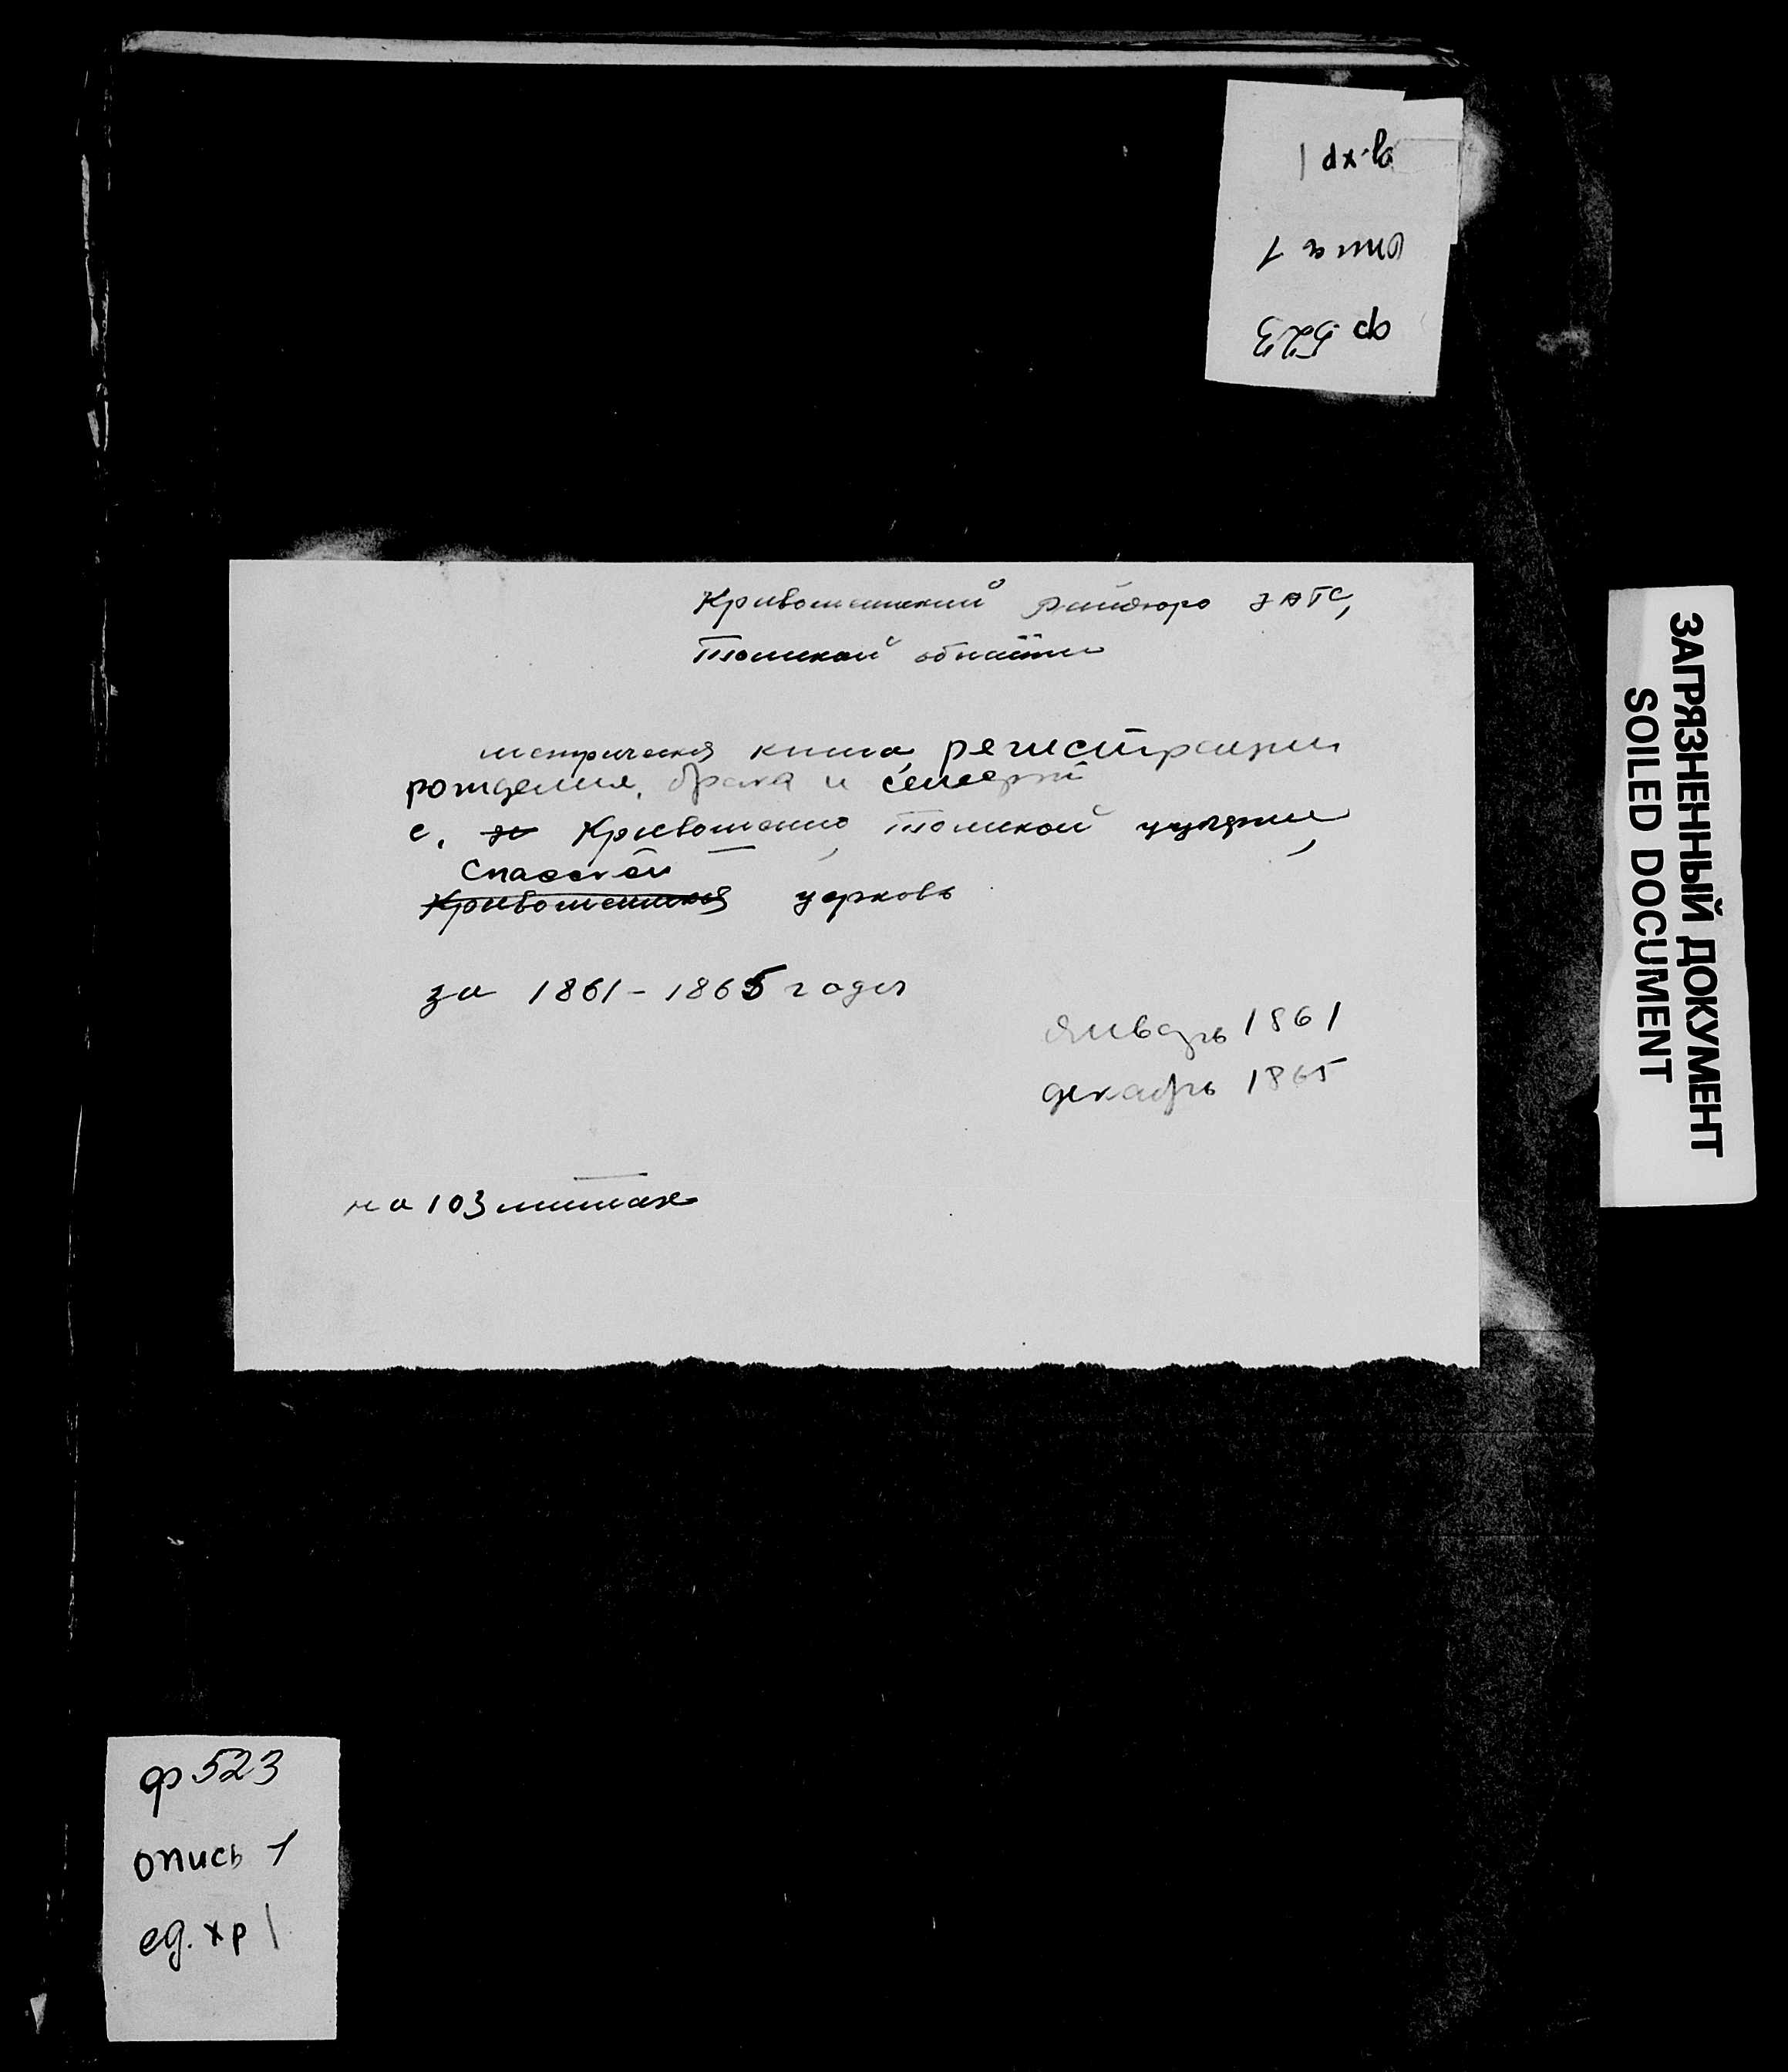 ед. хр 1
опись 1
ф 523
Кривошеинский райбюро ЗАГС,
Томской области
метрическая книга регистрации
рождения, брака и смерти
с. Кривошеино, Томской губернии,
Спасской
Кривошеинская церковь
за 1861-1865 годы
январь 1861
декабрь 1865
на 103 листах
ЗАГРЯЗНЕННЫЙ ДОКУМЕНТ
SOILED DOCUMENT
ф 523
опись 1
ед. хр 1